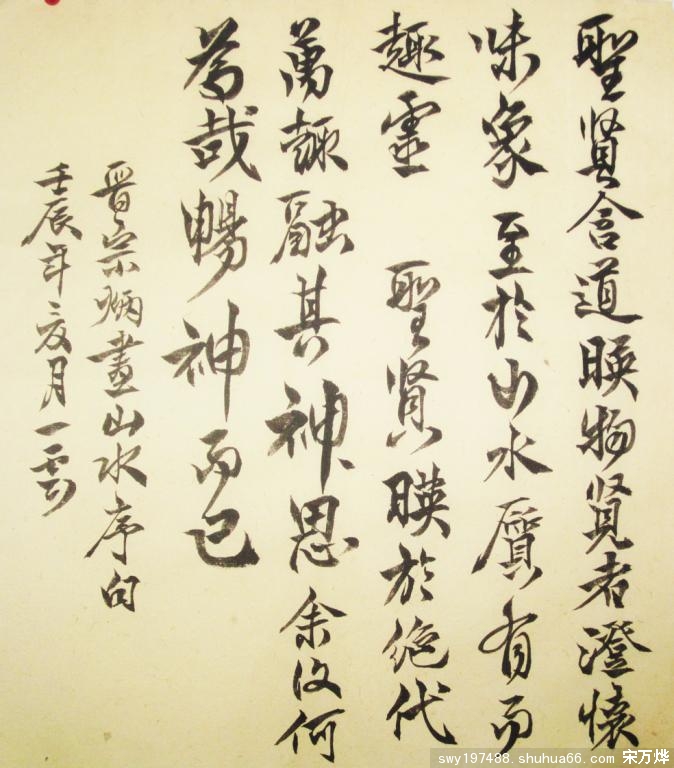 聖賢含道暎物賢者澄懷
味象至於山水質有而
趣靈 聖賢暎於絕代
萬趣融其神思余復何
為哉暢神而已
晉宗炳畫山水序句
壬辰年二月一雲
swy197488.shuhua66.com 宋万烨